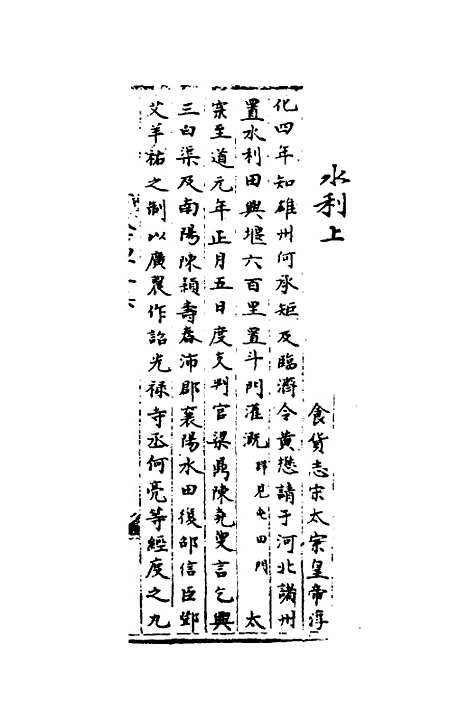 水利上
食貨志宋太宗皇帝淳
化四年知雄州何承矩及臨濟令黃懋請于河北諸州
置水利田興堰六百里置斗門灌溉詳見屯田門　太
宗至道元年正月五日度支判官梁鼎陳堯叟言乞興
三白渠及南陽陳潁壽春沛郡襄陽水田復邵信臣鄧
艾羊祐之制以廣農作詔光祿寺丞何亮等經度之九